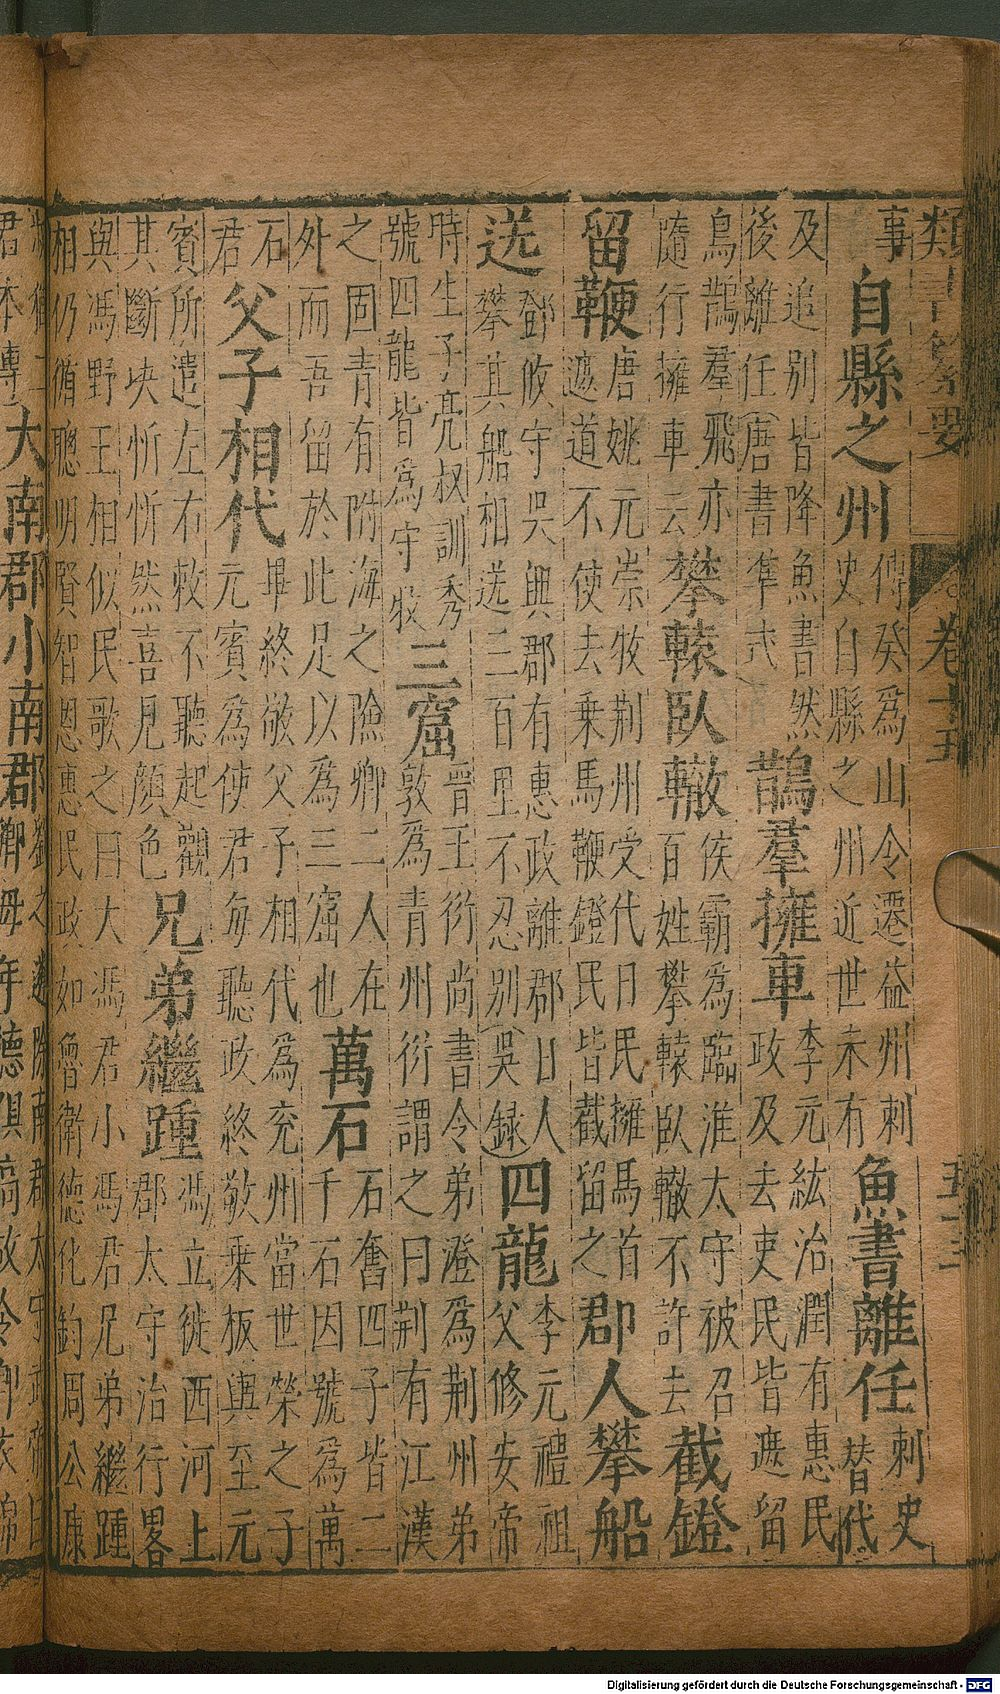 類書纂要 卷十五
事 自縣之州 傳癸為山令遷益州刺
史自縣之州近世未有 魚書離任 刺史
替代
及追別皆降魚書然
後離任(唐書準式) 鵲羣擁車 李元紘治潤有惠民
政及去吏民皆遮留
烏鵲羣飛亦
隨行擁車云 攀轅臥轍 侯霸為臨淮太守被召
百姓攀轅臥轍不許去 截鐙
留鞭 唐姚元崇牧荆州受代日民擁馬首
遮道不使去乗馬鞭鐙民皆截留之 郡人攀船
送 鄧攸守吳興郡有惠政離郡日人
攀其船相送三百里不忍別(吳録) 四龍 李元禮祖
父修安帝
時生子亮叔訓秀
號四龍皆為守牧 三窟 晉王衍尚書令弟澄為荆州弟
敦為青州衍謂之曰荆有江漢
之固青有附海之險卿二人在
外而吾留於此足以為三窟也 萬石 石奮四子皆二
千石因號為萬
石
君 父子相代 畢終敬父子相代為兗州當世榮之子
元賓為使君每聽政終敬乗板輿至元
賓所遣左右敕不聽起觀
其斷决忻忻然喜見顏色 兄弟繼踵 馮立徙西河上
郡太守治行畧
與馮野王相似民歌之曰大馮君小馮君兄弟繼踵
相仍循聰明賢智恩惠民政如魯衛德化鈞周公康
君本傳 大南郡小南郡 劉之遴除南郡太守武帝曰
卿母年德俱高故令卿衣錦
Digitalisierung gefördert durch die Deutsche Forschungsgemeinschaft - DFG